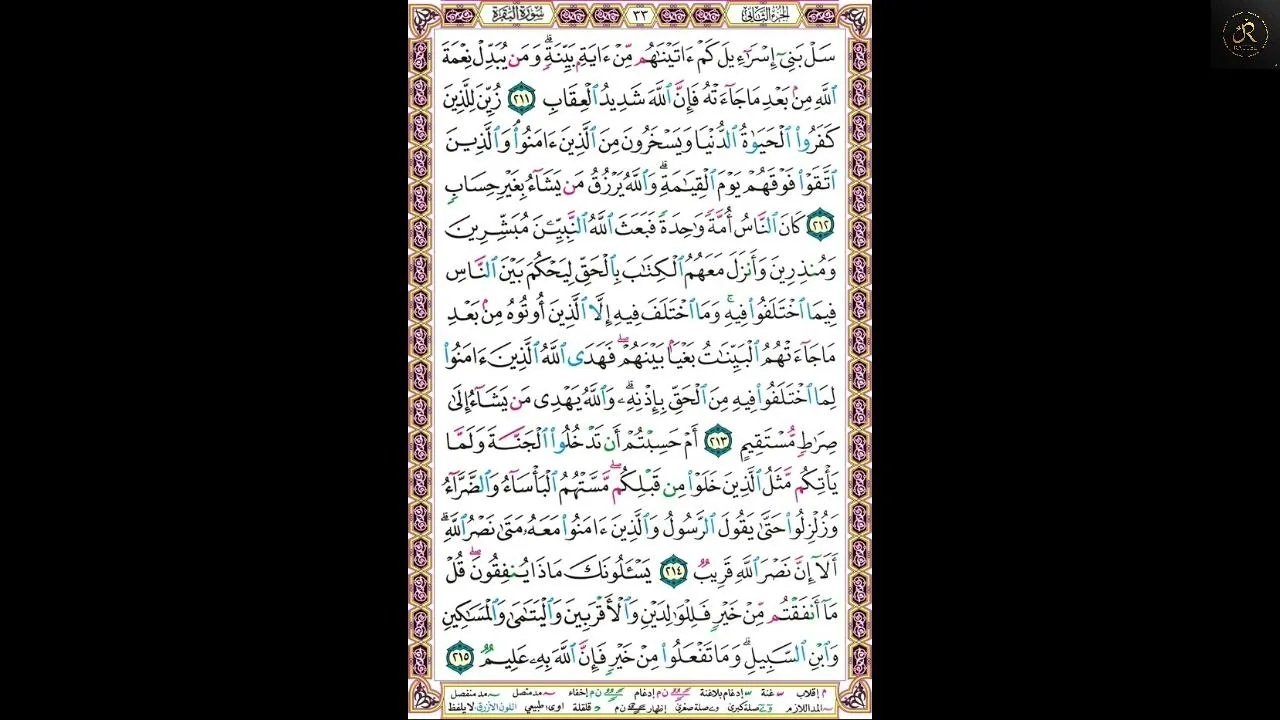 سُورَةُ الْبَقَرَةِ ٣٣ الجُزْءُ الثَّانِي
سَلْ بَنِىٓ إِسْرَٰٓءِيلَ كَمْ ءَاتَيْنَٰهُم مِّنْ ءَايَةٍۭ بَيِّنَةٍۗ وَمَن يُبَدِّلْ نِعْمَةَ
ٱللَّهِ مِنۢ بَعْدِ مَا جَآءَتْهُ فَإِنَّ ٱللَّهَ شَدِيدُ ٱلْعِقَابِ ٢١١ زُيِّنَ لِلَّذِينَ
كَفَرُوا۟ ٱلْحَيَوٰةُ ٱلدُّنْيَا وَيَسْخَرُونَ مِنَ ٱلَّذِينَ ءَامَنُوا۟ۘ وَٱلَّذِينَ
ٱتَّقَوْا۟ فَوْقَهُمْ يَوْمَ ٱلْقِيَٰمَةِۗ وَٱللَّهُ يَرْزُقُ مَن يَشَآءُ بِغَيْرِ حِسَابٍ
٢١٢ كَانَ ٱلنَّاسُ أُمَّةً وَٰحِدَةً فَبَعَثَ ٱللَّهُ ٱلنَّبِيِّۦنَ مُبَشِّرِينَ
وَمُنذِرِينَ وَأَنزَلَ مَعَهُمُ ٱلْكِتَٰبَ بِٱلْحَقِّ لِيَحْكُمَ بَيْنَ ٱلنَّاسِ
فِيمَا ٱخْتَلَفُوا۟ فِيهِۚ وَمَا ٱخْتَلَفَ فِيهِ إِلَّا ٱلَّذِينَ أُوتُوهُ مِنۢ بَعْدِ
مَا جَآءَتْهُمُ ٱلْبَيِّنَٰتُ بَغْيًۢا بَيْنَهُمْۖ فَهَدَى ٱللَّهُ ٱلَّذِينَ ءَامَنُوا۟
لِمَا ٱخْتَلَفُوا۟ فِيهِ مِنَ ٱلْحَقِّ بِإِذْنِهِۦۗ وَٱللَّهُ يَهْدِى مَن يَشَآءُ إِلَىٰ
صِرَٰطٍ مُّسْتَقِيمٍ ٢١٣ أَمْ حَسِبْتُمْ أَن تَدْخُلُوا۟ ٱلْجَنَّةَ وَلَمَّا
يَأْتِكُم مَّثَلُ ٱلَّذِينَ خَلَوْا۟ مِن قَبْلِكُمۖ مَّسَّتْهُمُ ٱلْبَأْسَآءُ وَٱلضَّرَّآءُ
وَزُلْزِلُوا۟ حَتَّىٰ يَقُولَ ٱلرَّسُولُ وَٱلَّذِينَ ءَامَنُوا۟ مَعَهُۥ مَتَىٰ نَصْرُ ٱللَّهِۗ
أَلَآ إِنَّ نَصْرَ ٱللَّهِ قَرِيبٌ ٢١٤ يَسْـَٔلُونَكَ مَاذَا يُنفِقُونَۖ قُلْ
مَآ أَنفَقْتُم مِّنْ خَيْرٍ فَلِلْوَٰلِدَيْنِ وَٱلْأَقْرَبِينَ وَٱلْيَتَٰمَىٰ وَٱلْمَسَٰكِينِ
وَٱبْنِ ٱلسَّبِيلِۗ وَمَا تَفْعَلُوا۟ مِنْ خَيْرٍ فَإِنَّ ٱللَّهَ بِهِۦ عَلِيمٌ ٢١٥
إقلاب غنة إدغام بلاغنة ن م إدغام ن م إخفاء مد متصل مد منفصل
المد اللازم صلة كبرى صلة صغرى إظهار ن م قلقلة اوى طبيعي اللون الأزرق لا يلفظ